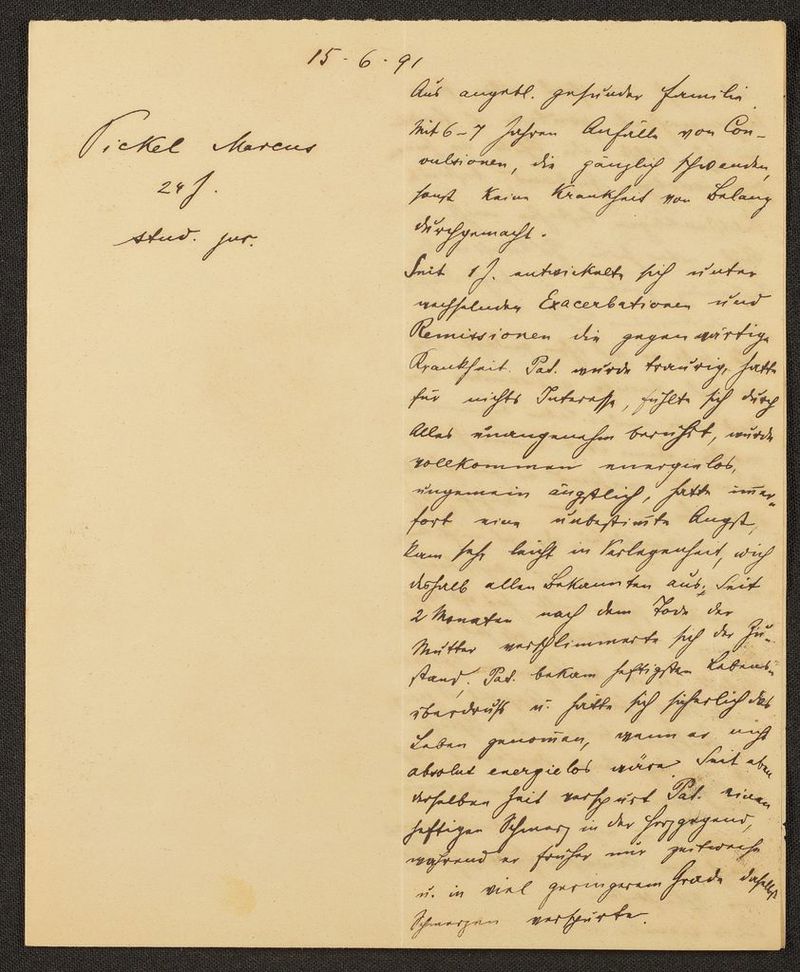 15. 6. 91
Pickel Marcus
24 J.
stud. jur.
Aus angebl. gesunder Familie.
Mit 6-7 Jahren Anfälle von Con-
vulsionen, die gänzlich schwanden,
sonst keine Krankheit von Belang
durchgemacht.
Seit 1 J. entwickelte sich unter
wechselnden Exacerbationen und
Remissionen die gegenwärtige
Krankheit. Pat. wurde traurig, hatte
für nichts Interesse, fühlte sich durch
Alles unangenehm berührt, wurde
vollkommen energielos,
ungemein ängstlich, hatte im̅er-
fort eine unbestim̅te Angst,
kam sehr leicht in Verlegenheit, wich
deshalb allen Bekannten aus. Seit
2 Monaten nach dem Tode der
Mutter verschlimmerte sich der Zu-
stand. Pat. bekam heftigsten Lebens-
überdruß u. hätte sich sicherlich das
Leben genom̅en, wenn er nicht
absolut energielos wäre. Seit eben
derselben Zeit verspürt Pat. einen
heftigen Schmerz in der Herzgegend,
während er früher nur zeitweise
u. in viel geringerem Grade daselbst
Schmerzen verspürte.